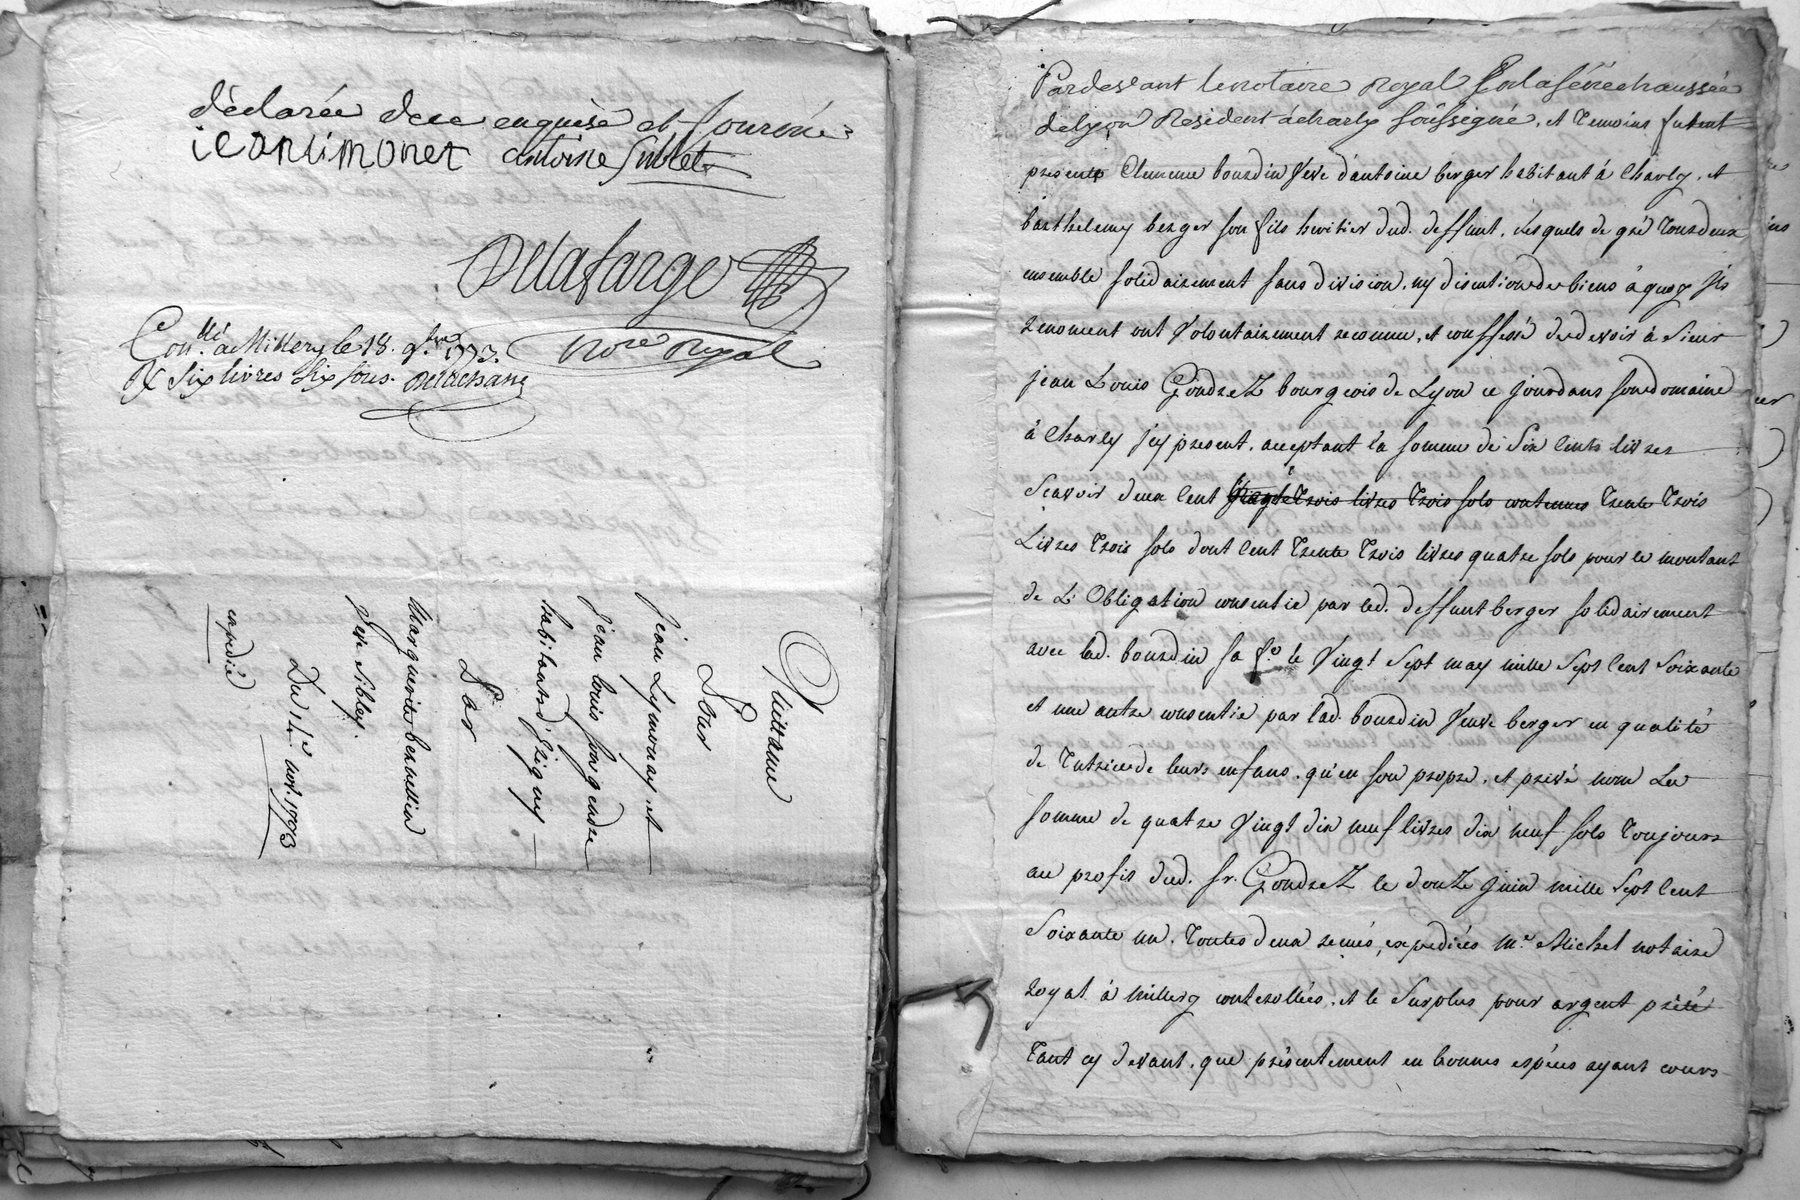 déclarée de ce enquise et sommée
jean limonet antoine Sublet
Delafarge
Con.llé à Millery le 18. 9.bre 1773.
R Six livres six sous. Delachans
no.re Royal
quittance
Pour
jean Lymonay et
jean louis
habitants d'
Par
Marguerite bernallin
veve Sibley.
Du 14.e nov. 1773
expedié
Pardevant le notaire Royal En la sénéchaussée
de lyon Résident à charly soussigné, et temoins furent
presents Clemence bourdin veve d'antoine berger habitant à Charly, et
barthelemy berger son fils heritier dud. deffunt, lesquels de gré tous deux
ensemble solidairement sans division, ny discution de biens à quoy ils
renoncent ont volontairement reconnu, et confessé de devoir à Sieur
jean Louis GondreZ bourgeois de Lyon ce jourd dans son domaine
à Charly jcy present, acceptant la somme de Six Cents livres
Scavoir deux Cent trois livres trois sols contenues trente trois
Livres trois sols dont Cent trente trois livres quatre sols pour le montant
de L'Obligation consentie par led. deffunt berger solidairement
avec lad. bourdin sa f.e le Vingt Sept may mille Sept Cent Soixante
et une autre consentie par lad. bourdin veuve berger en qualité
de Tutrice de leurs enfans, qu'en son propre, et privé nom de
somme de quatre Vingt dix neuf livres dix neuf sols toujours
au profit dud. Sr. GondreZ le douZe juin mille Sept Cent
Soixante un. Toutes deux reçues, expediées m.e Michel notaire
royal à millery controllées, et le Surplus pour argent prêté
tant cy devant, que présentement en bonnes espéces ayant cours